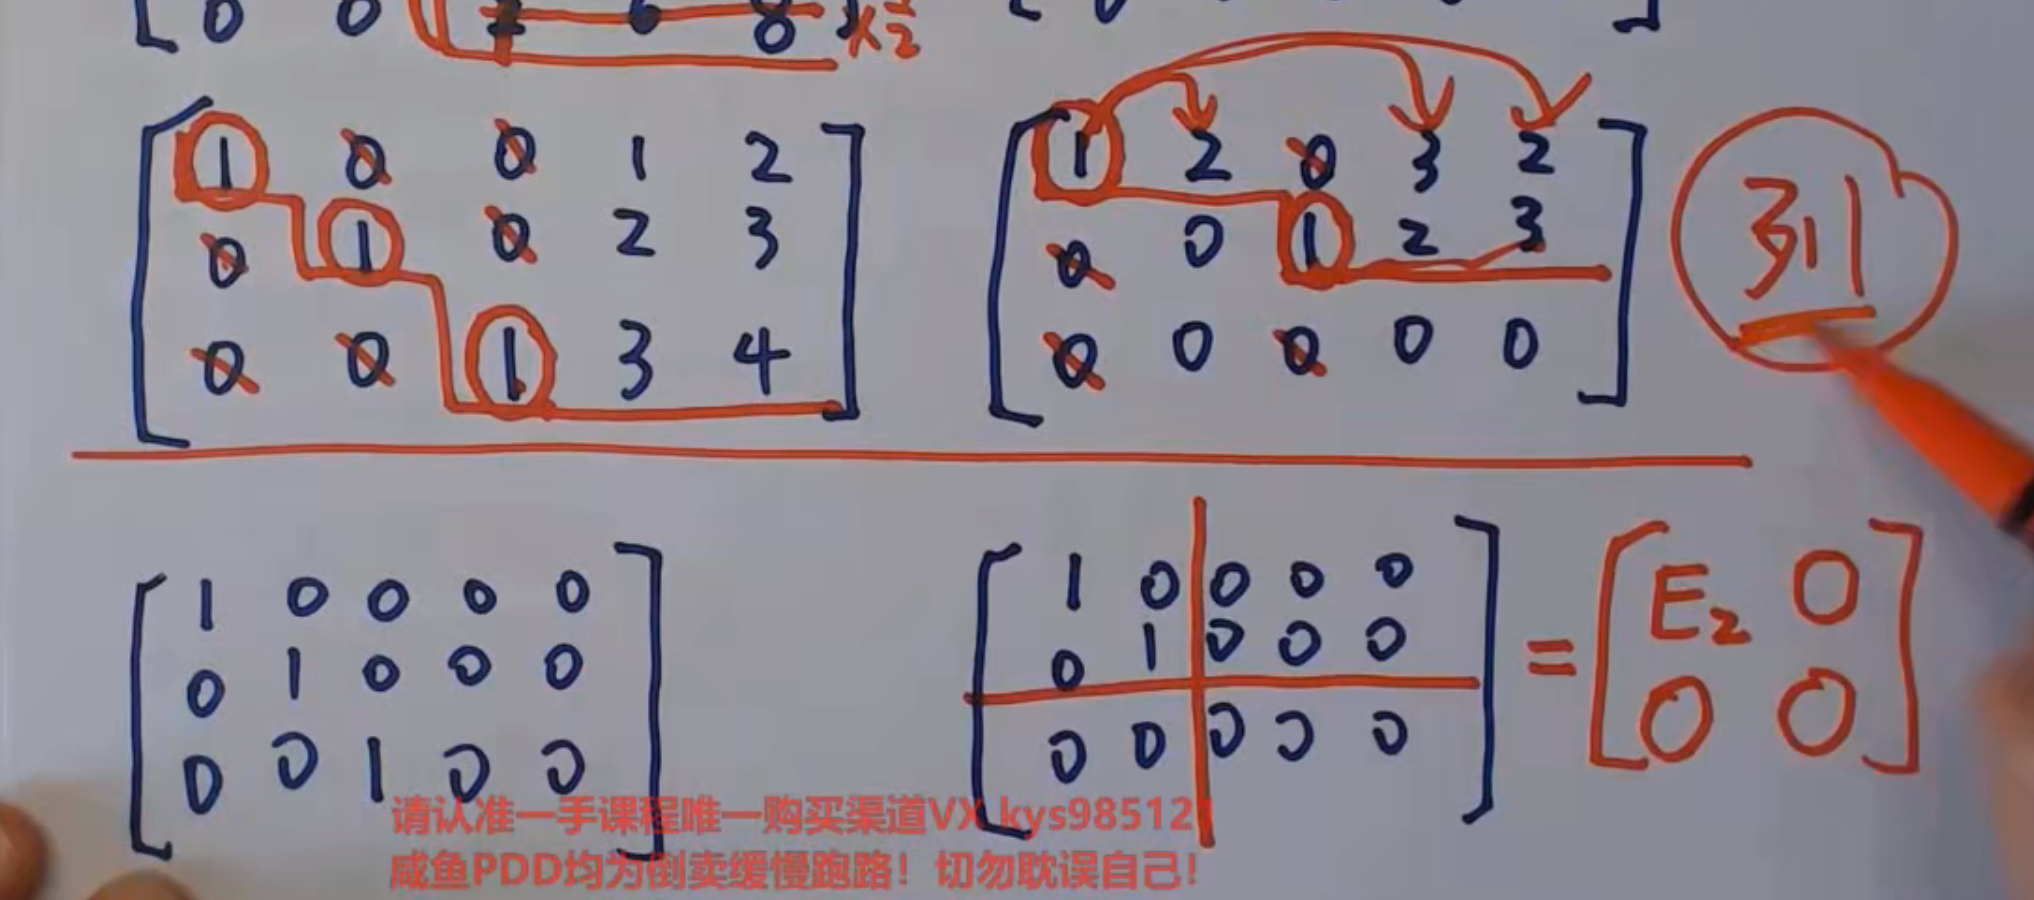 0 0 2 6 8 ×1/2
1 0 0 1 2
0 1 0 2 3
0 0 1 3 4
1 2 0 3 2
0 0 1 2 3
0 0 0 0 0
列
1 0 0 0 0
0 1 0 0 0
0 0 1 0 0
1 0 0 0 0
0 1 0 0 0
0 0 0 0 0
=
E₂ 0
0 0
请认准一手课程唯一购买渠道VX kys985121
咸鱼PDD均为倒卖缓慢跑路！切勿耽误自己！